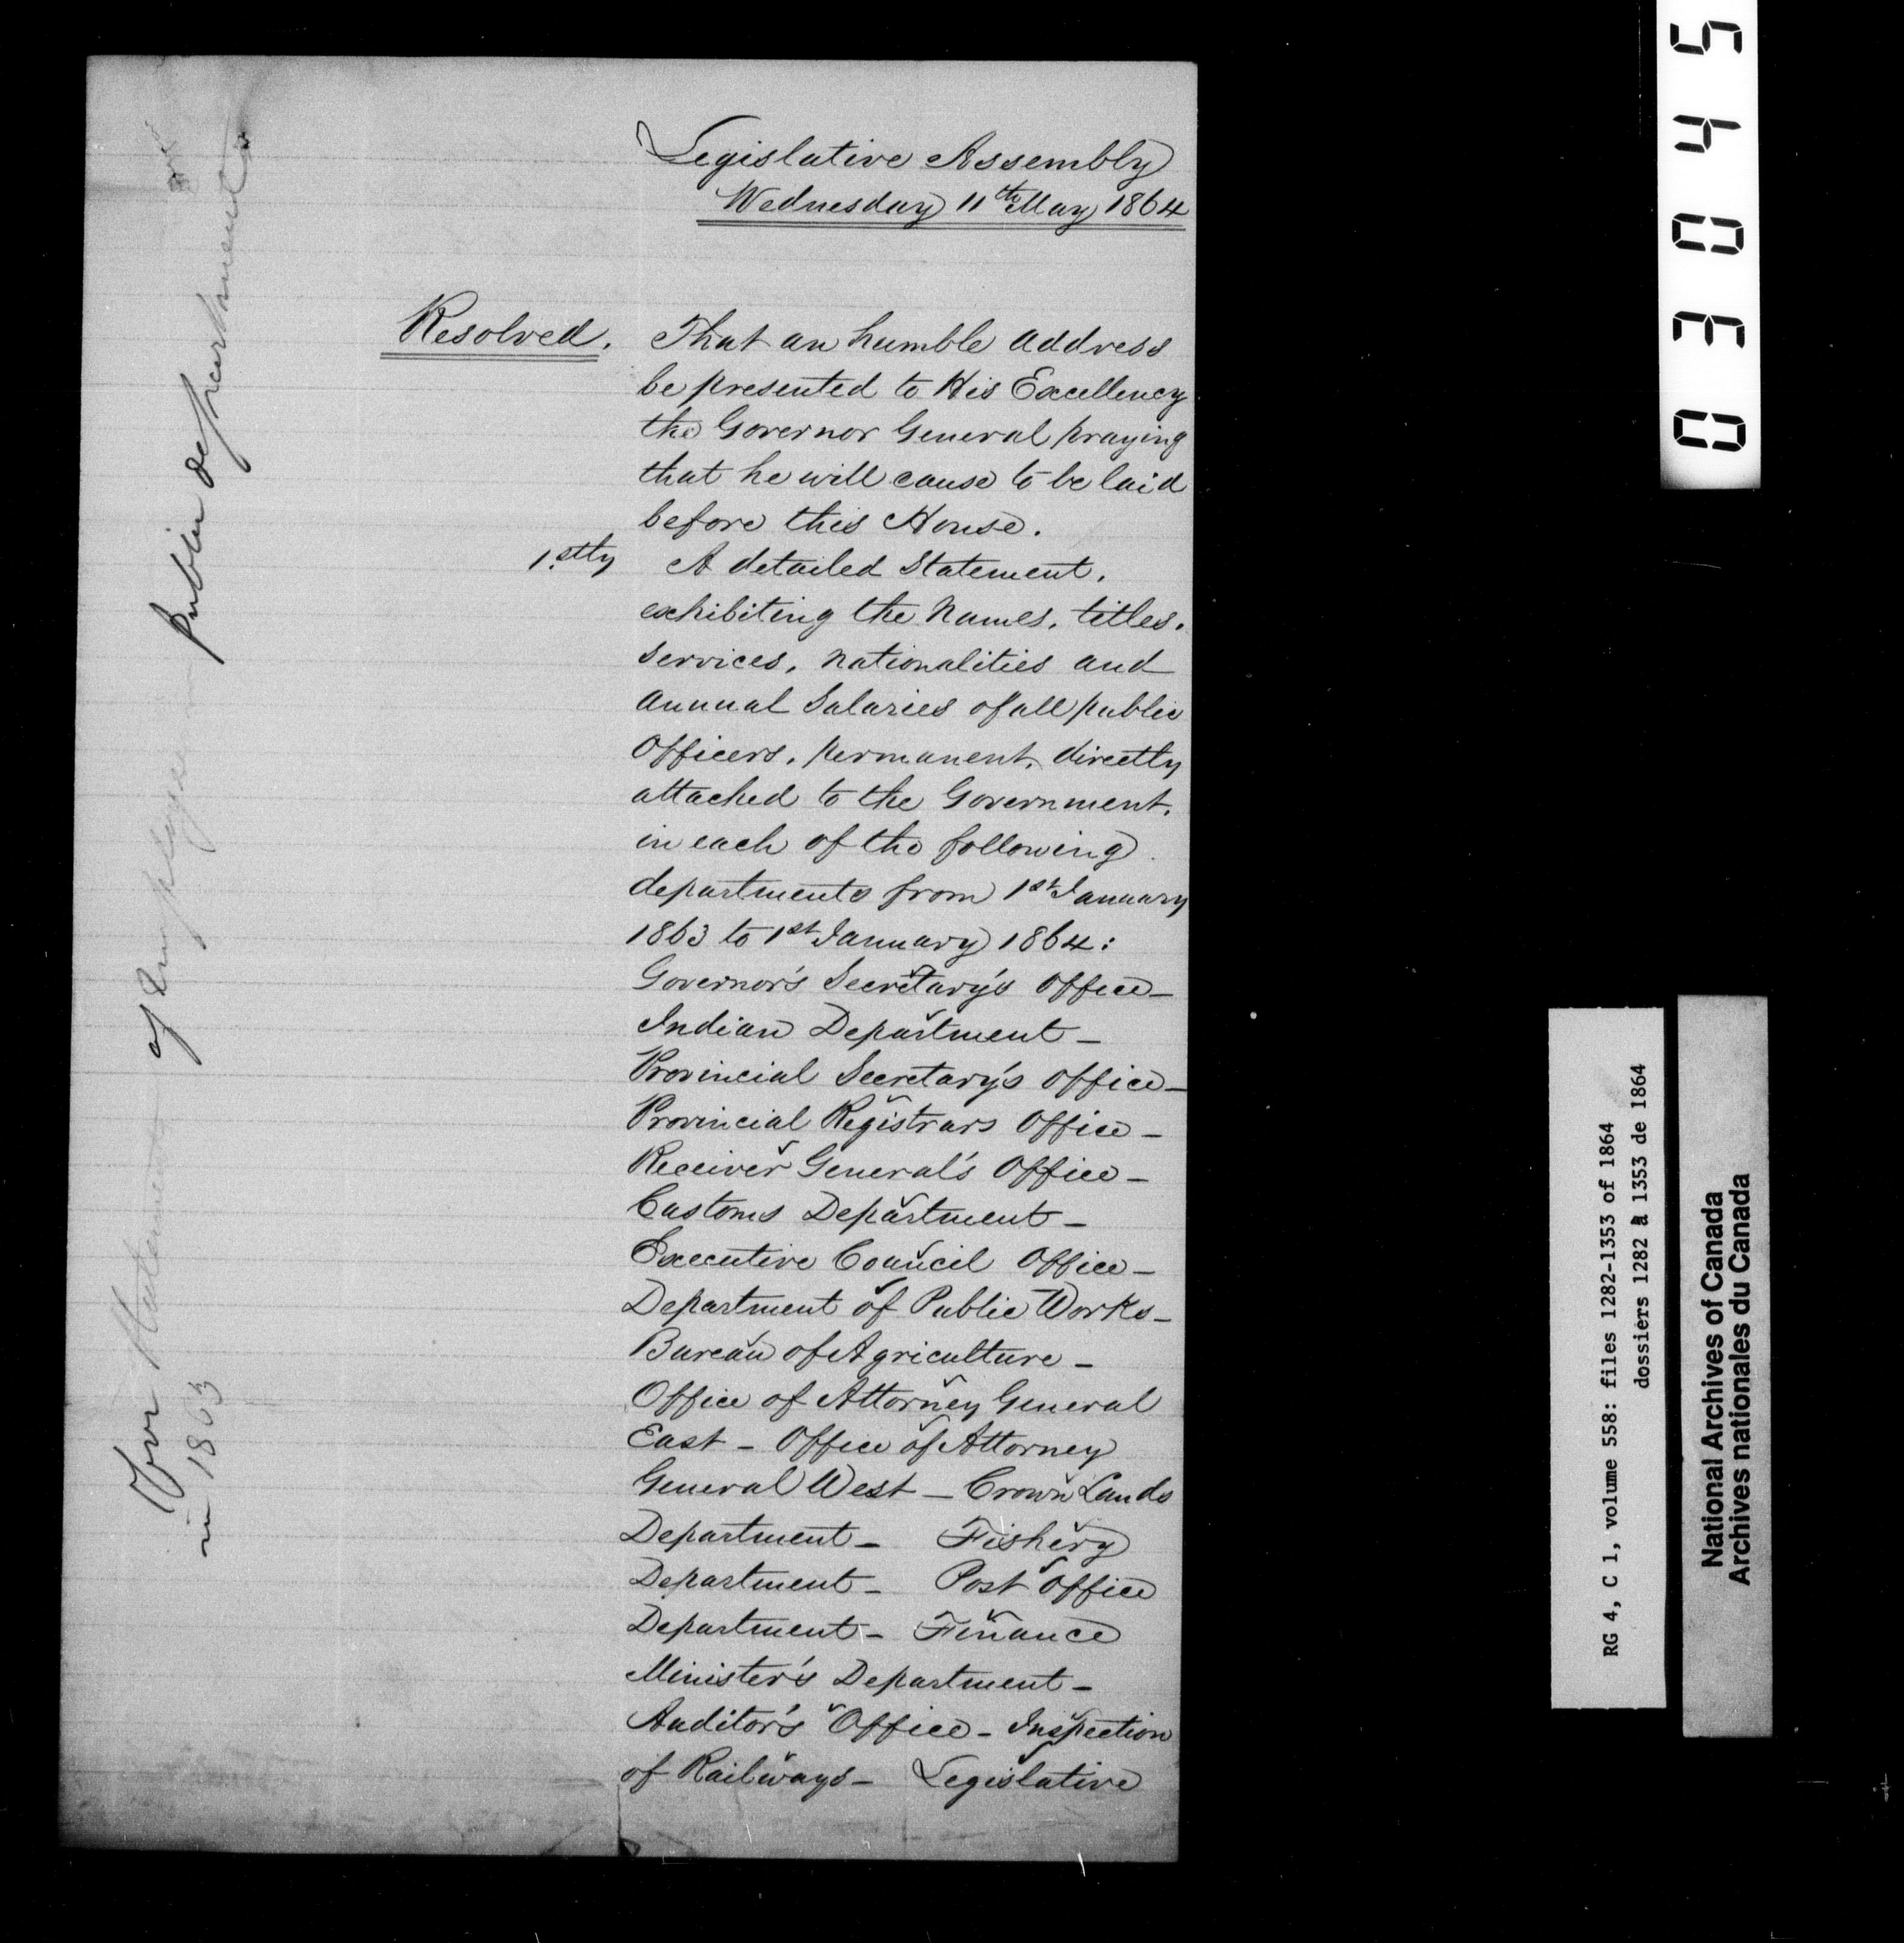 Legislative Assembly
Wednesday 11th May 1864
Resolved. That an humble address
be presented to His Excellency
the Governor General praying
that he will cause to be laid
before this House.
1.stly A detailed Statement.
exhibiting the Names. titles.
Services. Nationalities and
Annual Salaries of all public
Officers. permanent. directly
attached to the Government.
in each of the following
departments from 1st January
1863 to 1st January 1864:
Governor's Secretary's Office_
Indian Department_
Provincial Secretary's Office_
Provincial Registrars Office_
Receiver General's Office_
Customs Department_
Executive Council Office_
Department of Public Works_
Bureau of Agriculture_
Office of Attorney General
East_ Office of Attorney
General West_ Crown Lands
Department_ Fishery
Department_ Post Office
Department_ Finance
Minister's Department_
Auditor's Office_ Inspection
of Railways_ Legislative
For Statement of Employees public departments
in 1863
03045
RG 4, C 1, volume 558: files 1282-1353 of 1864
dossiers 1282 à 1353 de 1864
National Archives of Canada
Archives nationales du Canada